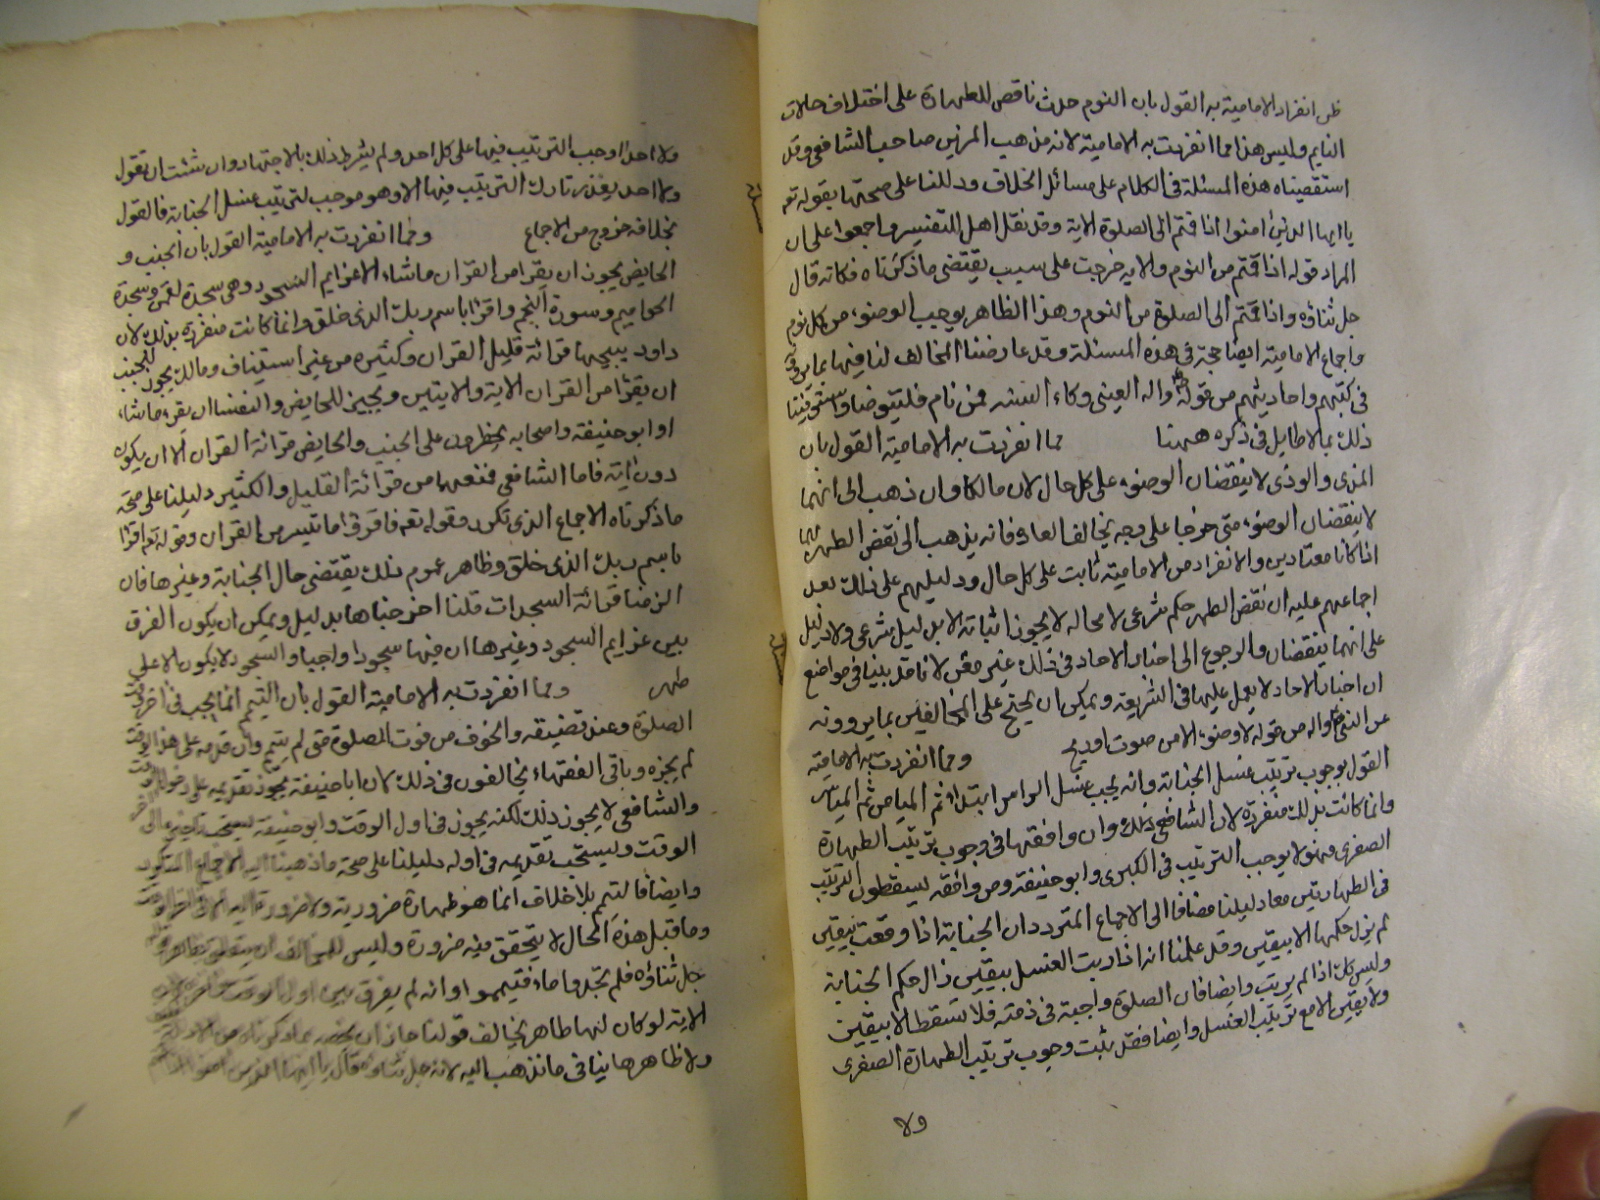 ظن انفراد الامامية به القول بان النوم حدث ناقض للطهارة على اختلاف حالات
النايم وليس هذا مما انفردت به الامامية لانه مذهب المزنى صاحب الشافعى وقد
استقصيناه هذه المسئلة فى الكلام على مسائل الخلاف ودللنا على صحتها بقوله تع
يا ايها الذين امنوا اذا قمتم الى الصلوة الاية وقد نقل اهل التفسير واجمعوا على ان
المراد قوله اذا قمتم من النوم والاية خرجت على سبب يقتضى ماذكرناه فكانه قال
جل ثناؤه واذا قمتم الى الصلوة من النوم وهذا الظاهر يوجب الوضوء من كل نوم
واجماع الامامية ايضا حجة فى هذه المسئلة وقد عارضنا المخالف لنا فيها بما
فى كتبهم واحاديثهم من قوله واله العينى وكاء السه فمن نام فليتوضا واستوفينا
ذلك بما لاطايل فى ذكره ههنا مما انفردت به الامامية القول بان
المذى والوذى لا ينقضان الوضوء على كل حال لان مالكا وان ذهب الى انهما
لا ينقضان الوضوء متى خرجا على وجه يخالف العادة فانه يذهب الى نقض الطهر بهما
اذا كانا معتادين والانفراد من الامامية ثابت على كل حال ودليلهم على ذلك بعد
اجماعهم عليه ان نقض الطهر حكم شرعى لا محاله لا يجوز اثباته الا بدليل شرعى ولا دليل
على انهما ينقضان والرجوع الى اخبار الاحاد فى ذلك غير مغن لانا قد بينا فى مواضع
ان اخبار الاحاد لا يعمل عليها فى الشريعة ويمكن ان يحتج على المخالفين بما يروونه
عن النبى واله من قوله لا وضوء الا من صوت او ريح ومما انفردت به الامامية
القول بوجوب ترتيب غسل الجنابة وانه يجب غسل الراس ابتداء ثم الميامن ثم المياسر
وانما كانت بذلك منفردة لان الشافعى وان وافقها فى وجوب ترتيب الطهارة
الصغرى فهو لا يوجب الترتيب فى الكبرى وابو حنيفة ومن وافقه يسقطون الترتيب
فى الطهارتين معا دليلنا مضافا الى الاجماع المتردد ان الجنابة اذا وقعت بيقين
لم يزل حكمها الا بيقين وقد علمنا انه اذا رتب الغسل بيقين زال حكم الجنابة
وليس كك اذا لم يرتب وايضا فان الصلوة واجبة فى ذمته فلا تسقط الا بيقين
ولا يقين الا مع ترتيب الغسل وايضا فقد ثبت وجوب ترتيب الطهارة الصغرى
ولا
ولا احد اوجب الترتيب فيها على كل احد ولم يشرط ذلك بالاجتهاد وان شئت ان تقول
ولا احد يعذر تارك الترتيب فيها الا وهو موجب لترتيب غسل الجنابة فالقول
بخلافه خروج من الاجماع ومما انفردت به الامامية القول بان الجنب و
الحايض يجوز ان يقرا من القران ماشاء الا عزايم السجود وهى سجدة لقمن وسجدة
الحواميم وسورة النجم واقرا باسم ربك الذى خلق وانما كانت منفردة بذلك لان
داود يبيحها قرائة قليل القران وكثيره من غير استيناف ومالك يجوز للجنب
ان يقرا من القران الاية والايتين ويجيز للحايض والنفسا ان يقرء ما شاء
او ابو حنيفة واصحابه يحظرون على الجنب والحايض قرائة القران الا ان يكون
دون اية فاما الشافعى فمنعهما من قرائة القليل والكثير دليلنا على صحة
ماذكرناه الاجماع الذى تكرر وقوله تع فاقرؤا ما تيسر من القران وقوله تع اقرا
باسم ربك الذى خلق وظاهر عموم ذلك يقتضى حال الجنابة وغيرها فان
الزمنا قرائة السجدات قلنا اخرجناها بدليل ويمكن ان يكون الفرق
بين عزايم السجود وغيرها ان فيها سجودا واجبا والسجود لا يكون الا على
طهر ومما انفردت به الامامية القول بان التيمم انما يجب فى اخر وقت
الصلوة وعند تضييقه والخوف من فوت الصلوة متى لم يتيمم وان قدمه على هذا الوقت
لم يجزه وباقى الفقهاء يخالفون فى ذلك لان ابا حنيفة يجوز تقديمه على دخول الوقت
والشافعى لا يجوز ذلك لكنه يجوز فى اول الوقت وابو حنيفة يستحب تاخيره الى
الوقت ويستحب تقديمه فى اوله دليلنا على صحة ماذهبنا اليه الاجماع المتكرر
وايضا فالتيمم بلا خلاف انما هو طهارة ضرورية ولا ضرورة اليه الا فى اخر الوقت
وما قبل هذه الحال لا يتحقق فيه ضرورة وليس للمخالف ان يتعلق بظاهر قوله
جل ثناؤه فلم تجدوا ماء فتيمموا وانه لم يفرق بين اول الوقت واخره لان
الاية لو كان لها ظاهر يخالف قولنا جاز ان نخصه بما ذكرناه من الادلة
ولا ظاهر لها ينافى ما نذهب اليه لانه جل ثناؤه قال يا ايها الذين امنوا اذا قمتم